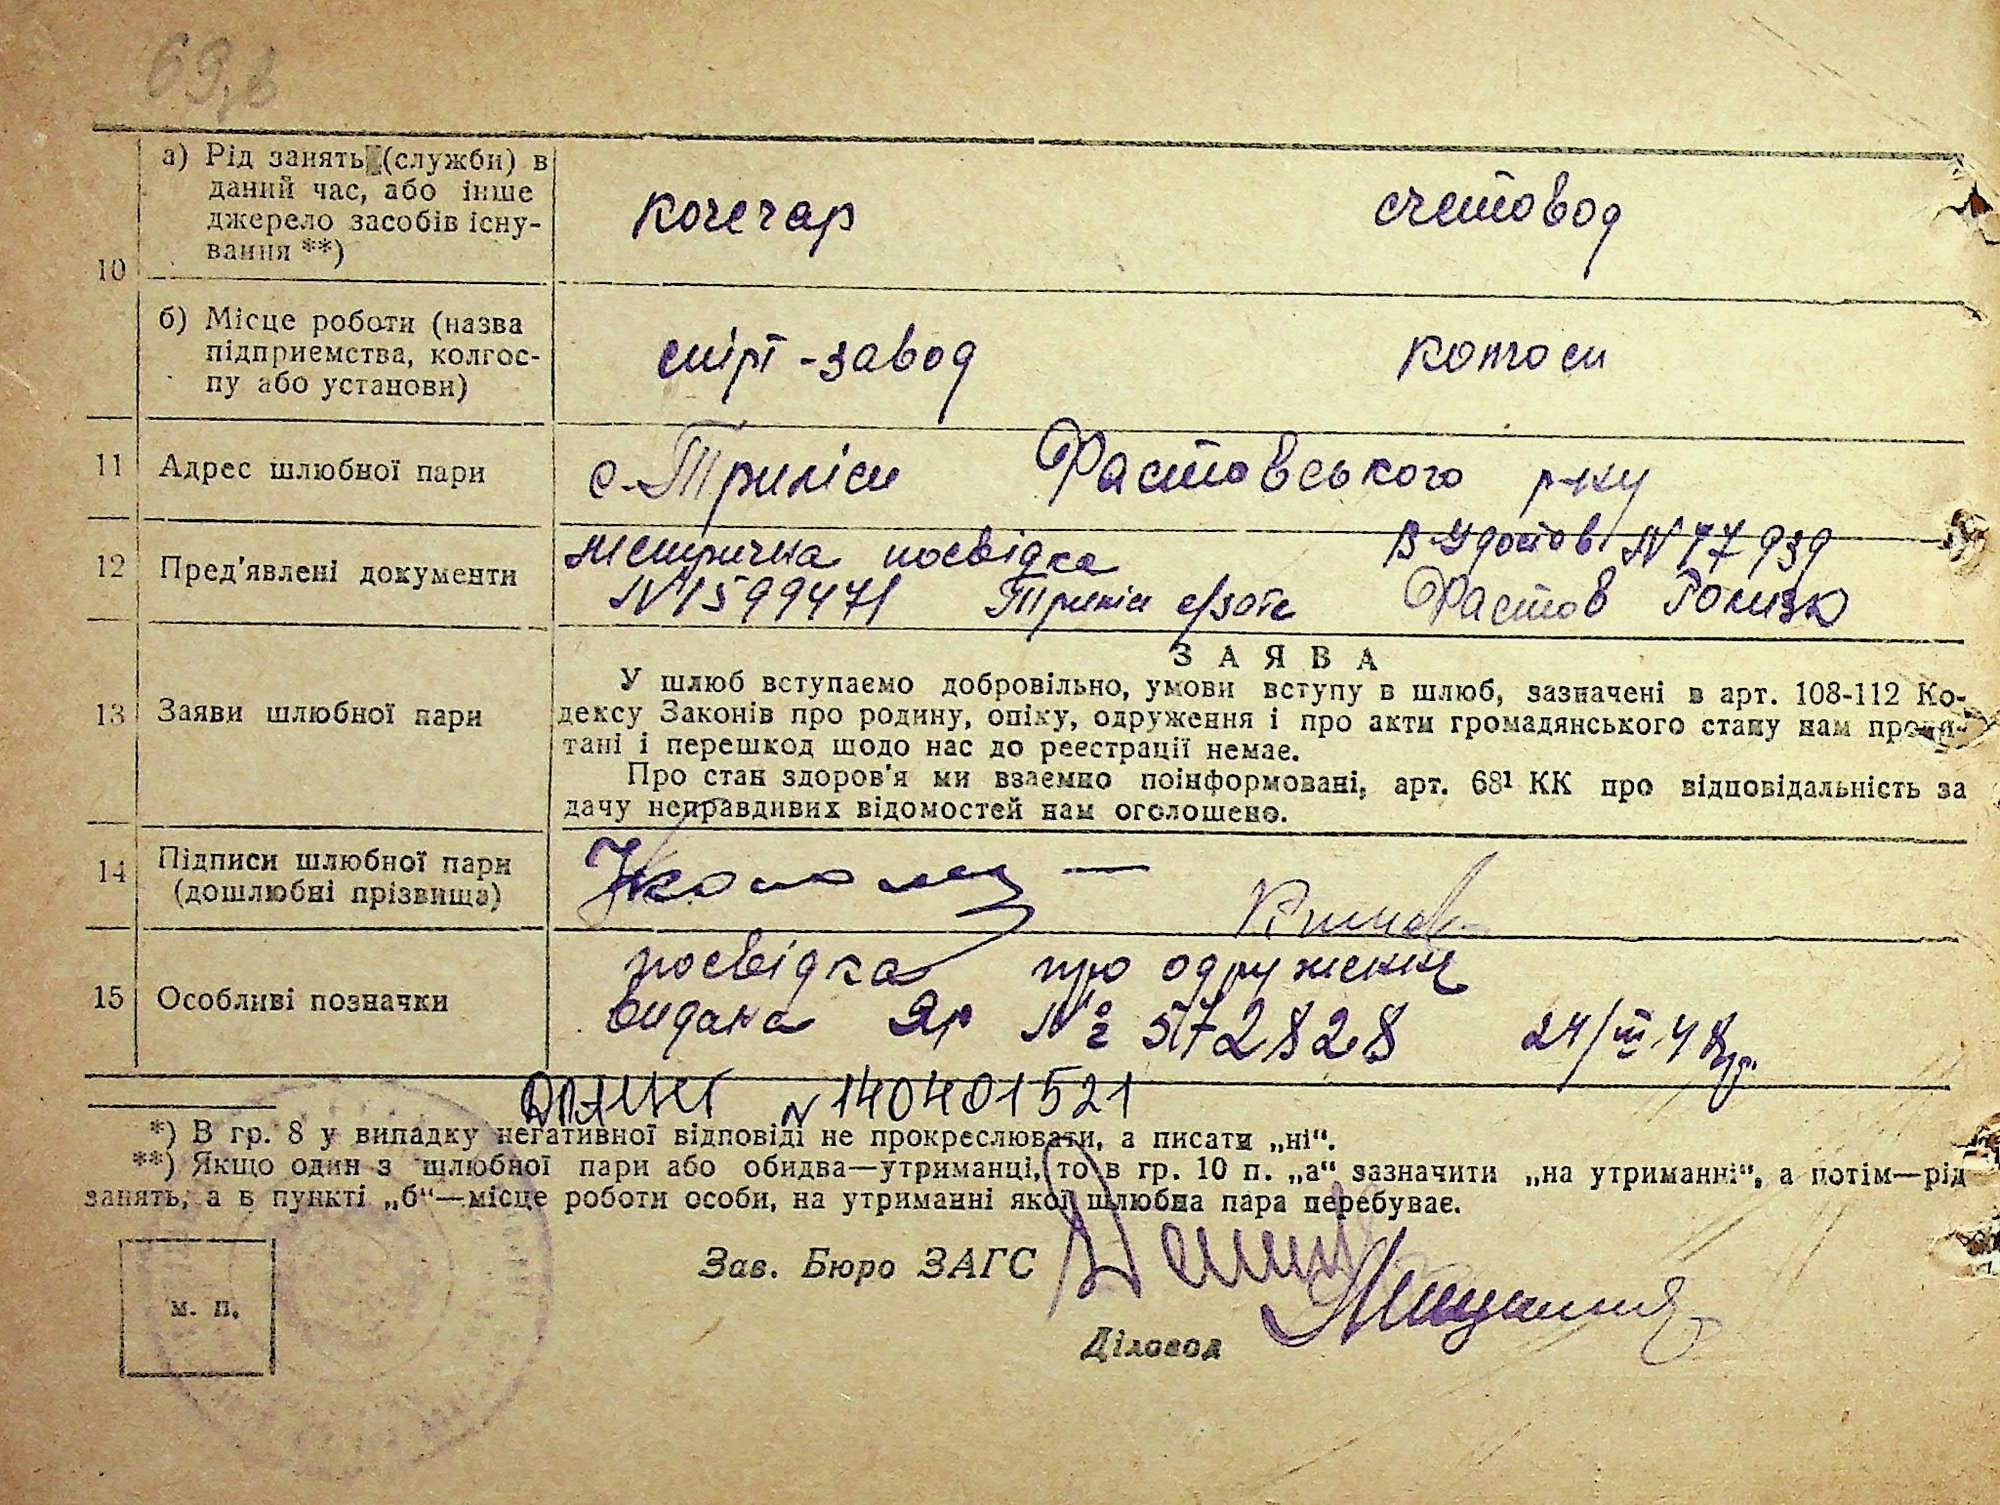 69,в
а) Рід занять (служби) в
даний час, або інше
джерело засобів існу-
вання **)
кочегар
счетовод
10
б) Місце роботи (назва
підприємства, колгос-
пу або установи)
спірт-завод
колгосп
11
Адрес шлюбної пари
с. Триліси Фастовського р-ну
12
Пред'явлені документи
Метрична посвідка
В-Удостов. N 77939
N 1599471 Триліси с/загс
Фастов
ЗАЯВА
13
Заяви шлюбної пари
У шлюб вступаємо добровільно, умови вступу в шлюб, зазначені в арт. 108-112 Ко-
дексу Законів про родину, опіку, одруження і про акти громадянського стану нам прочи-
тані і перешкод щодо нас до реєстрації немає.
Про стан здоров'я ми взаємно поінформовані, арт. 68¹ КК про відповідальність за
дачу неправдивих відомостей нам оголошено.
14
Підписи шлюбної пари
(дошлюбні прізвища)
15
Особливі позначки
посвідка про одруження
видана Яр № 572828 24/III 48 р.
N 140401521
*) В гр. 8 у випадку негативної відповіді не прокреслювати, а писати „ні“.
**) Якщо один з шлюбної пари або обидва—утриманці, то в гр. 10 п. „а“ зазначити „на утриманні“, а потім—рід
занять, а в пункті „б“—місце роботи особи, на утриманні якої шлюбна пара перебуває.
Зав. Бюро ЗАГС
м. п.
Діловод